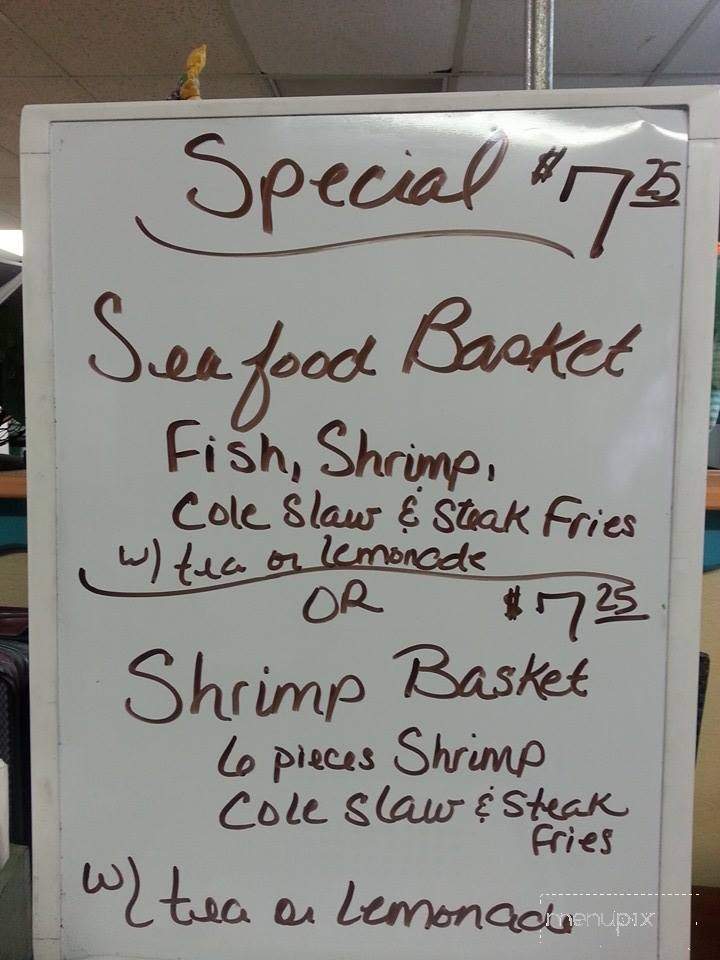 Special $7 25
Seafood Basket
Fish, Shrimp,
Cole Slaw & Steak Fries
w/ tea or lemonade
OR $7 25
Shrimp Basket
6 pieces Shrimp
Cole Slaw & Steak
Fries
w/ tea or Lemonade
menupix